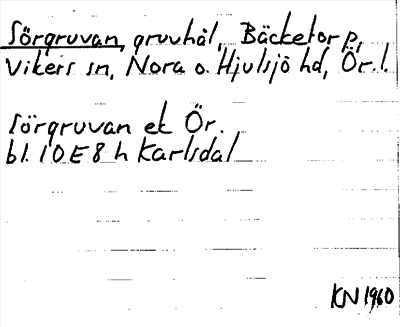 Sörgruvan, gruvhål, Bäcketorp,
Vikers sn, Nora o. Hjulsjö hd, Ör. l.
Sörgruvan ek Ör.
bl. 10E8h Karlsdal
KN 1960